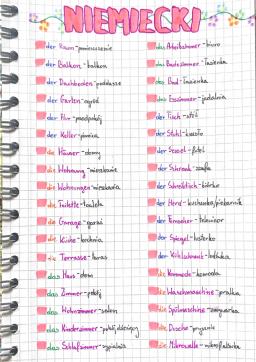 NIEMIECKI
der Raum - pomieszczenie
der Balkon - balkon
der Dachboden - poddasze
der Garten - ogród
der Flur - przedpokój
der Keller - piwnica
die Häuser - domy
die Wohnung - mieszkanie
die Wohnungen - mieszkania
die Toilette - toaleta
die Garage - garaż
die Küche - kuchnia
die Terrasse - taras
das Haus - dom
das Zimmer - pokój
das Wohnzimmer - salon
das Kinderzimmer - pokój dziecięcy
das Schlafzimmer - sypialnia
das Arbeitszimmer - biuro
das Badezimmer - łazienka
das Bad - łazienka
das Esszimmer - jadalnia
der Tisch - stół
der Stuhl - krzesło
der Sessel - fotel
der Schrank - szafa
der Schreibtisch - biurko
der Herd - kuchenka/piekarnik
der Fernseher - telewizor
der Spiegel - lusterko
der Kühlschrank - lodówka
die Kommode - komoda
die Waschmaschine - pralka
die Spülmaschine - zmywarka
die Dusche - prysznic
die Mikrowelle - mikrofalówka